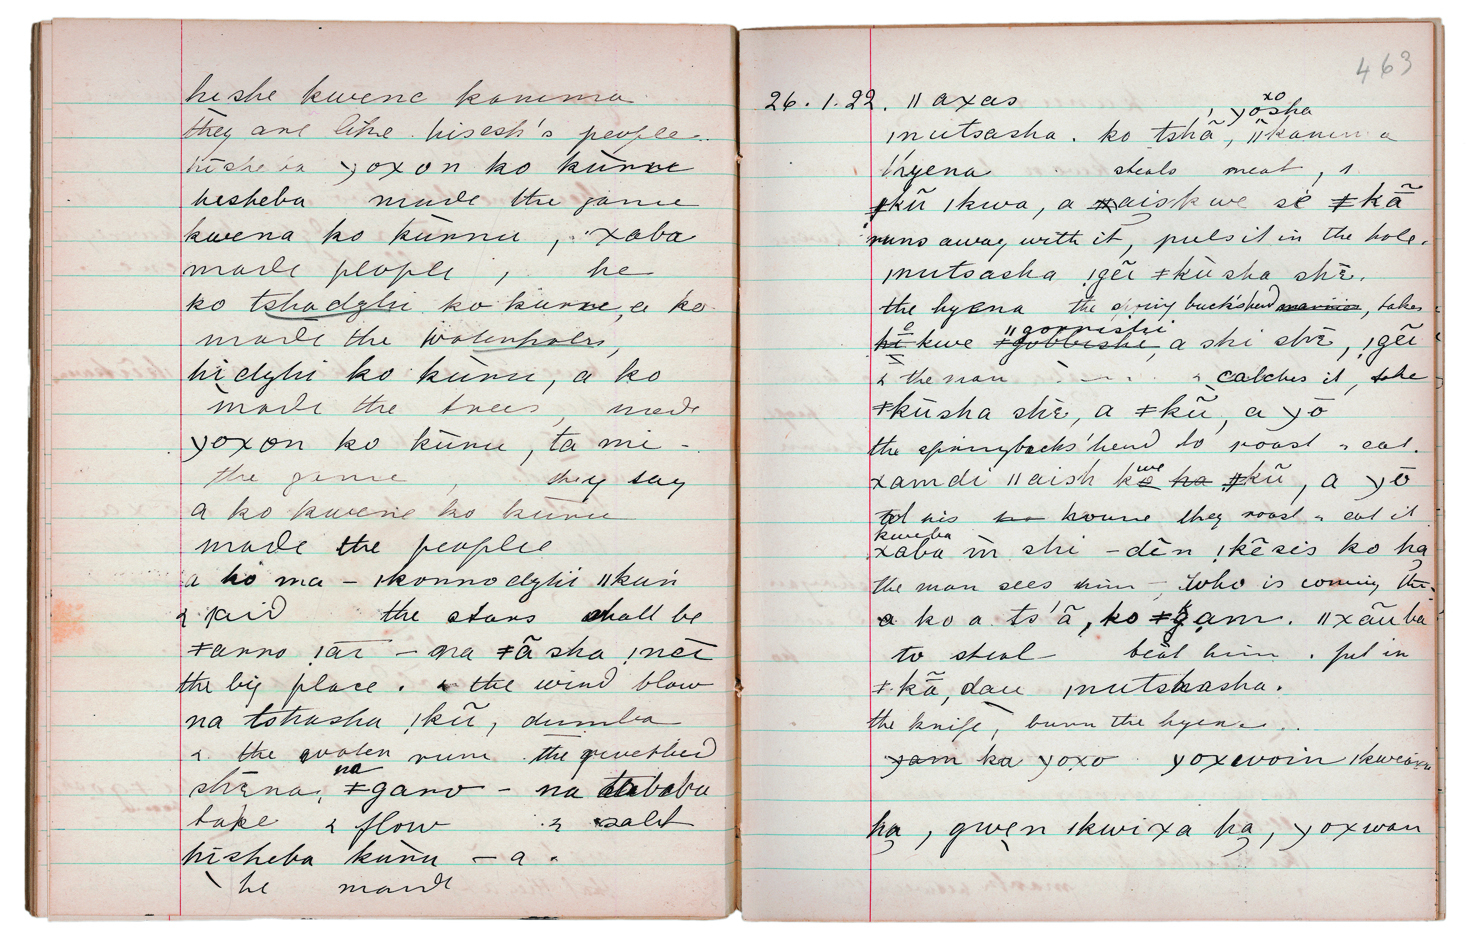 hishe kwene konema
they are like hisesh's people.
hisheba yoxon ko kuru
hesheba made the game
kwena ko kunnu, xaba
made people, he
ko tshadzhi ko kuru, a ko
made the waterholes,
hidzhi ko kuru, a ko
made the trees, made
yoxon ko kuru, ta mi -
the game, they say
a ko kwene ko kuru
made the people
a ko ma - ǀkonnodzhi ǁkun
& said the stars shall be
ǂanno ǃāī - na ǂã sha ǃnei
the big place. & the wind blow
na tshasha ǃkũ, dumba
& the water runs the riverbed
shēna, na ǂgaro - na debaba
take & flow & salt
hisheba kuru - a.
he made
463
26.1.22. ǁaxas
xo
ǀnutsasha. ko tshã, yosha ǁkanna
hyena steals meat,
ǂkũ ǀkwa, a aiskwe sé ǂkã
runs away with it, puts it in the hole.
ǀnutsasha ǃgẽi ǂkũsha shē.
the hyena the springbuck's head, takes
kwe ǁgorrishi a shi shē, ǃgẽi
& the man & catches it, take
ǂkũsha shē, a ǂkũ, a yō
the springbucks' head to roast & eat.
xamdi ǁaish kwe ǂkũ, a yō
at his house they roast & eat it
kweba
xaba ṁ shi - dēn ǃkẽsis ko ha
the man sees him - who is coming there
a ko a ts'ã, ko ǂgam. ǁxãũba
to steal beat him. put in
ǂkã, dau ǀnutshasha.
the knife, burn the hyena.
yam ka yoxo yoxwoin ǀkweixa
ha, gwen ǀkwixa ha, yoxwan